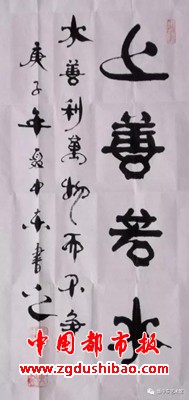 上善若水
水善利萬物而不爭
庚子年夏中東書之
中国都市报
www.zgdushibao.com